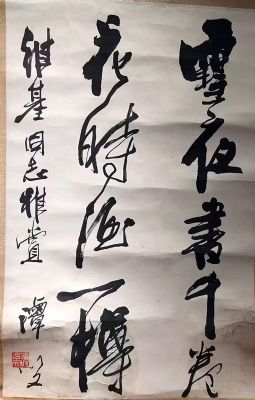 雪夜書千卷
花時酒一樽
維基同志雅賞